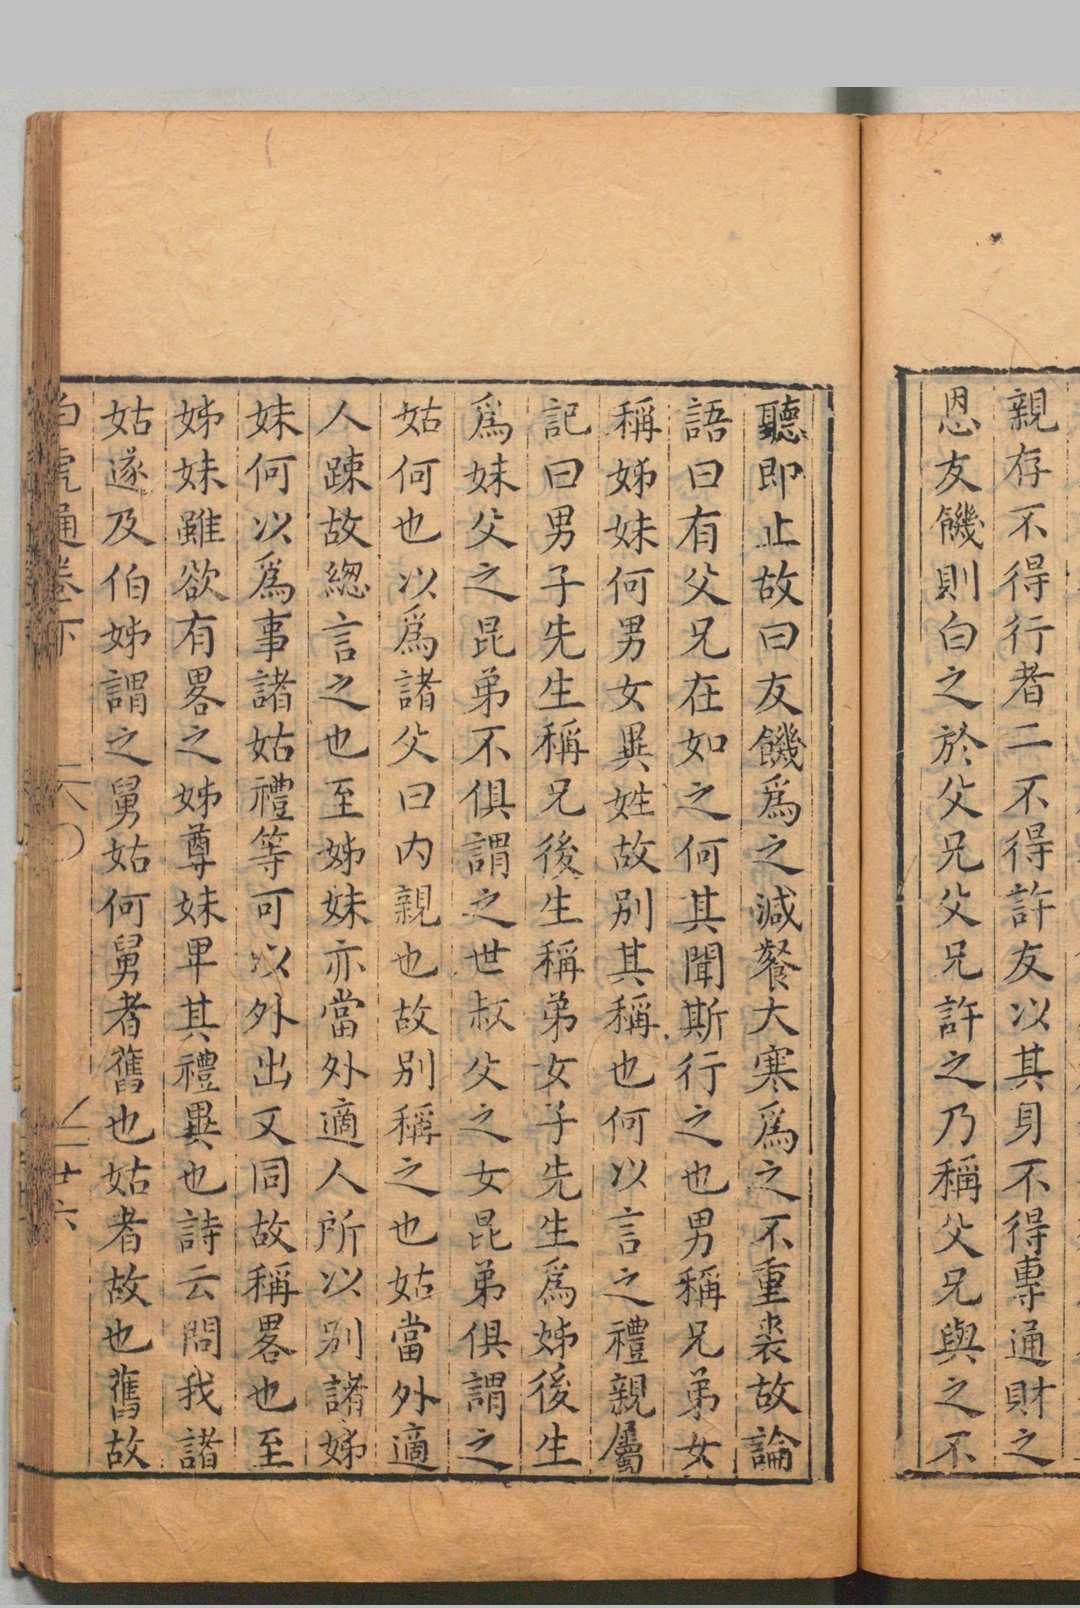 親存不得行者二不得許友以其身不得專通財之
恩友饑則白之於父兄父兄許之乃稱父兄與之不
聽即止故曰友饑爲之減餐大寒爲之不重裘故論
語曰有父兄在如之何其聞斯行之也男稱兄弟女
稱姊妹何男女異姓故別其稱也何以言之禮親屬
記曰男子先生稱兄後生稱弟女子先生爲姊後生
爲妹父之昆弟不俱謂之世叔父之女昆弟俱謂之
姑何也以爲諸父曰内親也故別稱之也姑當外適
人踈故緫言之也至姊妹亦當外適人所以別諸姊
妹何以爲事諸姑禮等可以外出又同故稱畧也至
姊妹雖欲有畧之姊尊妹卑其禮異也詩云問我諸
姑遂及伯姊謂之舅姑何舅者舊也姑者故也舊故
白虎通卷下
廿六